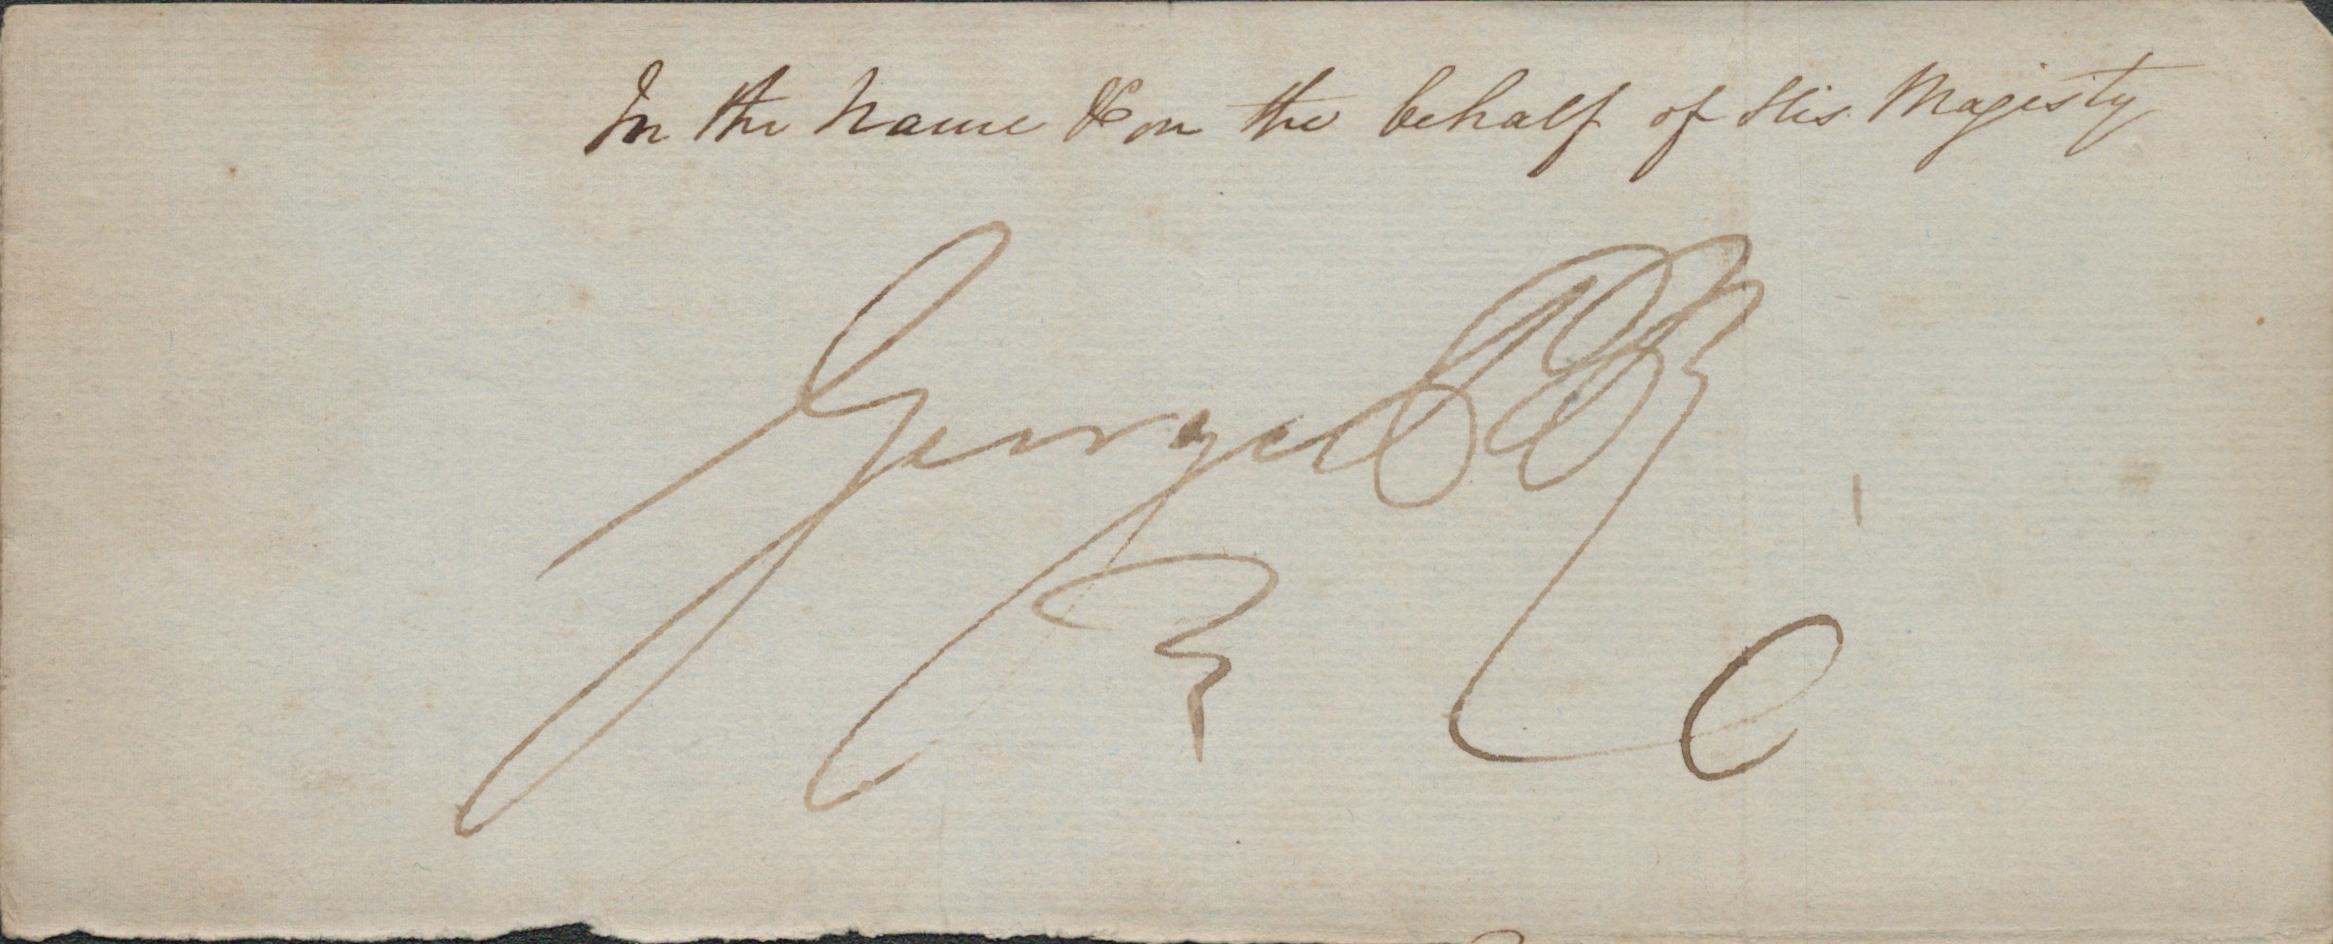 In the Name & on the behalf of His Majesty
George P R